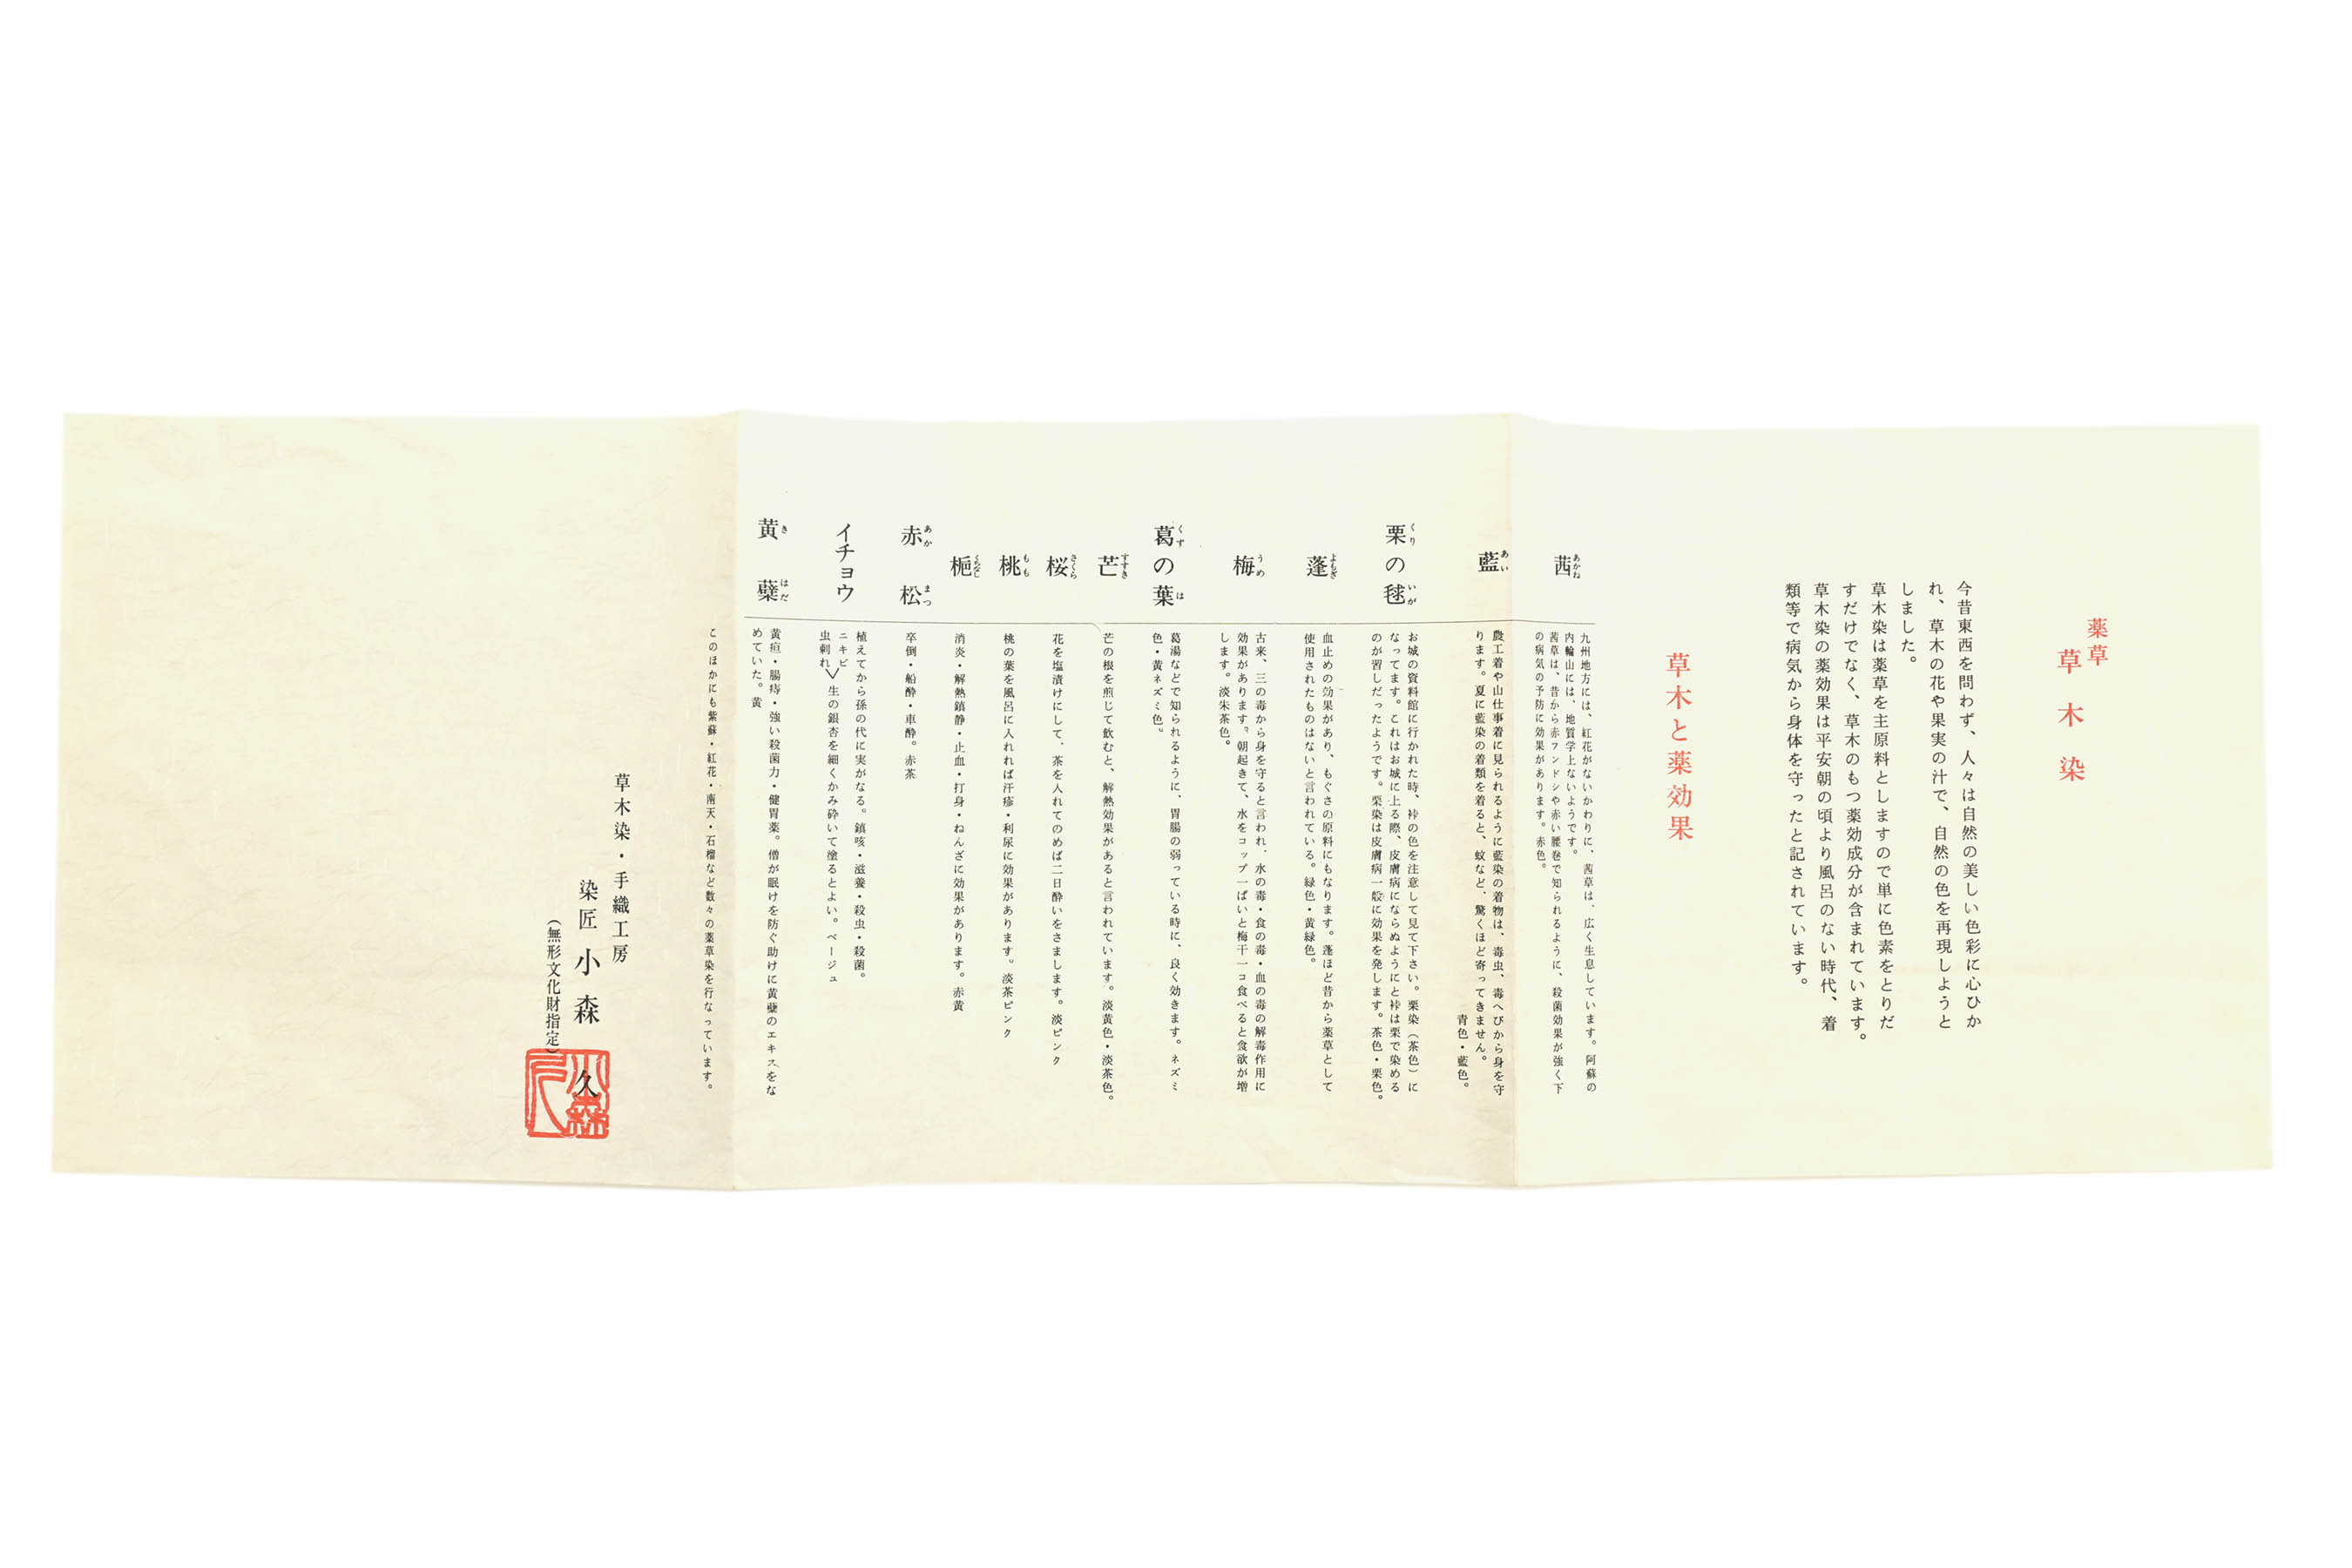 薬草
草木染
今昔東西を問わず、人々は自然の美しい色彩に心ひか
れ、草木の花や果実の汁で、自然の色を再現しようと
しました。
草木染は薬草を主原料としますので単に色素をとりだ
すだけでなく、草木のもつ薬効成分が含まれています。
草木染の薬効果は平安朝の頃より風呂のない時代、着
類等で病気から身体を守ったと記されています。
草木と薬効果
茜 あかね
九州地方には、紅花がないかわりに、茜草は、広く生息しています。阿蘇の
内輪山には、地質学上ないようです。
茜草は、昔から赤フンドシや赤い腰巻で知られるように、殺菌効果が強く下
の病気の予防に効果があります。赤色。
藍 あい
農工着や山仕事着に見られるように藍染の着物は、毒虫、毒へびから身を守
ります。夏に藍染の着類を着ると、蚊など、驚くほど寄ってきません。
青色・藍色。
栗の毬 くり いが
お城の資料館に行かれた時、裃の色を注意して見て下さい。栗染（茶色）に
なってます。これはお城に上る際、皮膚病にならぬようにと裃は栗で染める
のが習しだったようです。栗染は皮膚病一般に効果を発します。茶色・栗色。
蓬 よもぎ
血止めの効果があり、もぐさの原料にもなります。蓬ほど昔から薬草として
使用されたものはないと言われている。緑色・黄緑色。
梅 うめ
古来、三の毒から身を守ると言われ、水の毒・食の毒・血の毒の解毒作用に
効果があります。朝起きて、水をコップ一ぱいと梅干一コ食べると食欲が増
します。淡朱茶色。
葛の葉 くず は
葛湯などで知られるように、胃腸の弱っている時に、良く効きます。ネズミ
色・黄ネズミ色。
芒 すすき
芒の根を煎じて飲むと、解熱効果があると言われています。淡黄色・淡茶色。
桜 さくら
花を塩漬けにして、茶を入れてのめば二日酔いをさまします。淡ピンク
桃 もも
桃の葉を風呂に入れれば汗疹・利尿に効果があります。淡茶ピンク
梔 くちなし
消炎・解熱鎮静・止血・打身・ねんざに効果があります。赤黄
赤松 あか まつ
卒倒・船酔・車酔。赤茶
イチョウ
植えてから孫の代に実がなる。鎮咳・滋養・殺虫・殺菌。
ニキビ
虫刺れ 生の銀杏を細くかみ砕いて塗るとよい。ベージュ
黄蘗 き はだ
黄疸・腸痔・強い殺菌力・健胃薬。僧が眠けを防ぐ助けに黄蘗のエキスをな
めていた。黄
このほかにも紫蘇・紅花・南天・石榴など数々の薬草染を行なっています。
草木染・手織工房
染匠 小森 久
（無形文化財指定）
小森久